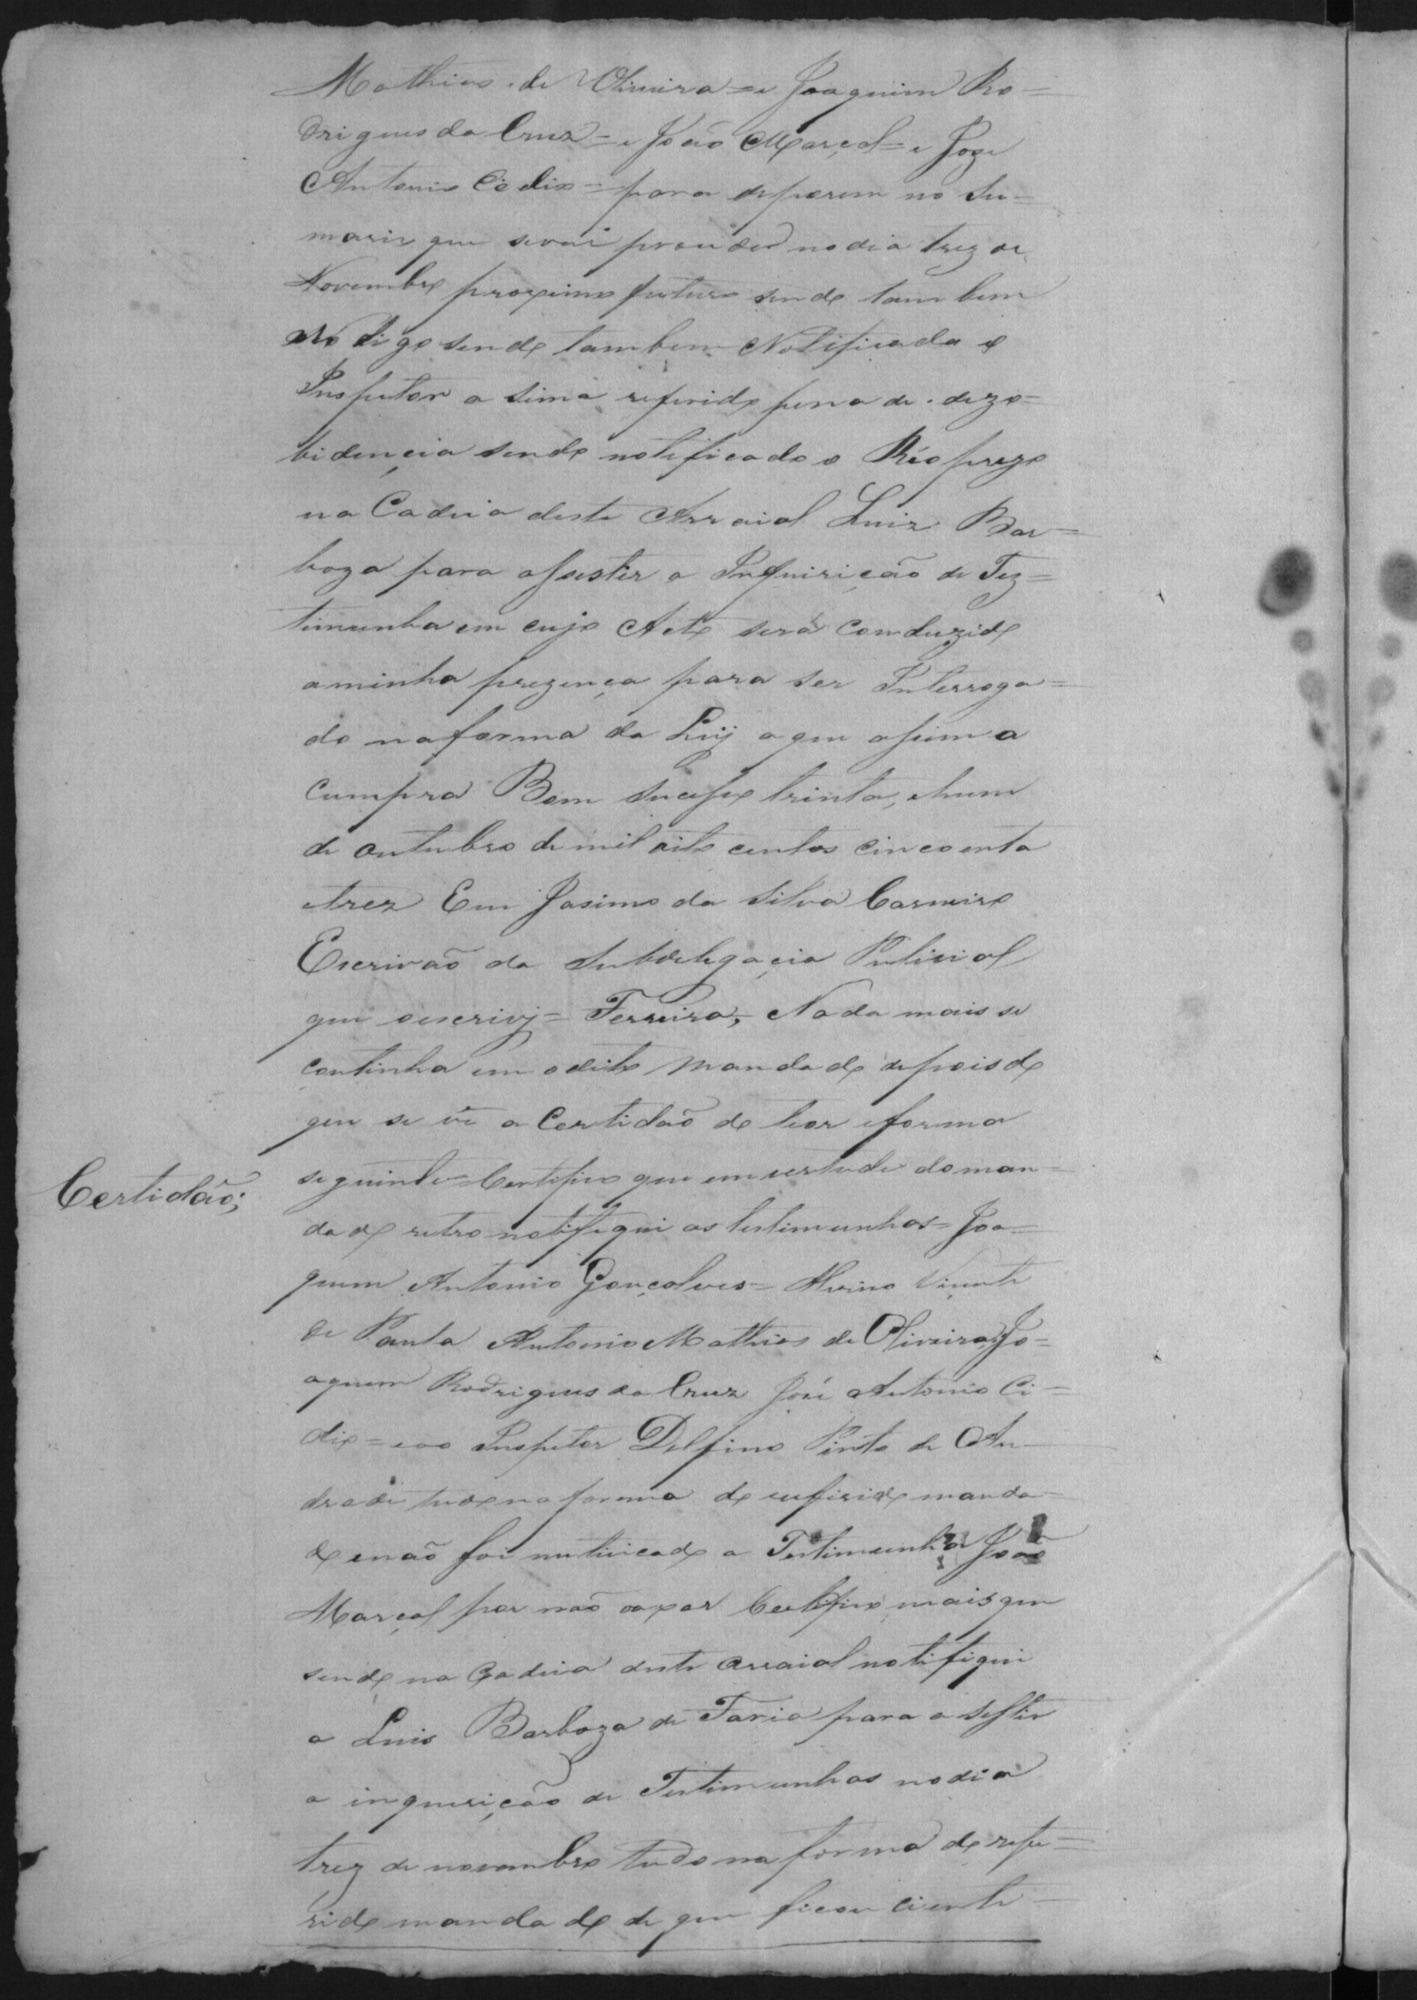 Mathias de Oliveira = e Joaquim Ro=
drigues da Cruz = e João Marçal = e Joze
Antonio Cidis = para deporem no Su=
mario que sevai proceder nodia trez de
Novembro proximo futuro sendo tambem
digo sendo tambem Notificado o
Inspetor a sima referido pena de dezo=
bidençia sendo notificado o Réo prezo
na Cadeia deste Arraial Luiz Bar=
boza para assestir a Inquirição de Tez=
timunha em cujo Acto será Comduzido
aminha prezença para ser Interroga=
do naforma da Leij o que assim o
cumpra Bom Sucesso trinta, ehum
de outubro demil oito centos cincoenta
etrez Eu Jasimo da Silva Carneiro
Escrivão da Subdelegaçia Pulicial
que oescrivj = Ferreira; Nada mais se
continha em odito mandado depois do
que se vê a Certidão do teor eforma
seguinte = Certifico que em vertude doman=
dado retro notifiqui as testimunhas = Joa=
quim Antonio Gonçalves = Vicente
de Paula Antonio Mathias de Oliveira, Jo=
aquim Rodrigues da Cruz José Antonio Ci=
dis = eao Inspetor Delfino Pinto de An=
drade tudo na forma do referido manda=
do enão foi nutificado a Testimunha João
Marçal por não Certifico mais que
sendo na Cadeia deste arraial notifiqui
a Luis Barboza de Faria para a sestir
a inquirição de Testimunhas nodia
trez de novembro tudo na forma do refe=
rido mandado de que ficou ciente
Certidão;